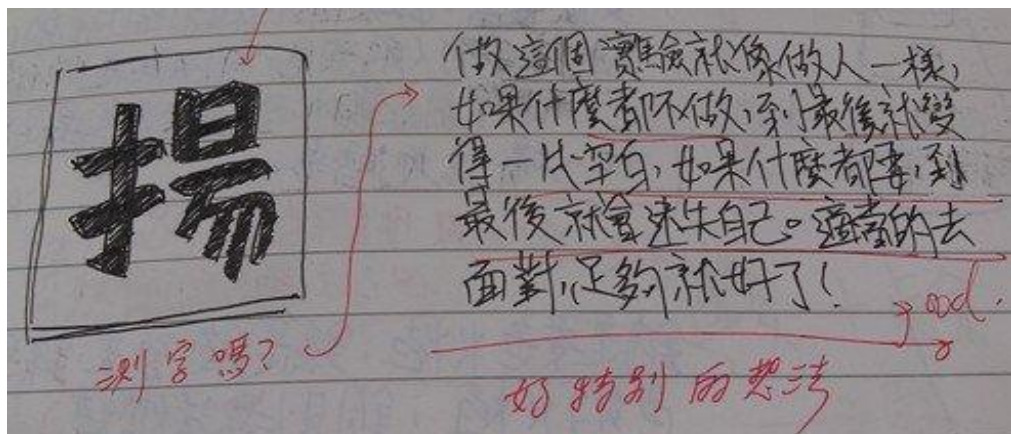 揚
做這個實驗就像做人一樣,
如果什麼都不做,到最後就變
得一片空白,如果什麼都要,到
最後就會迷失自己。適當的去
面對,足夠就好了!
good.
測字嗎?
好特別的想法